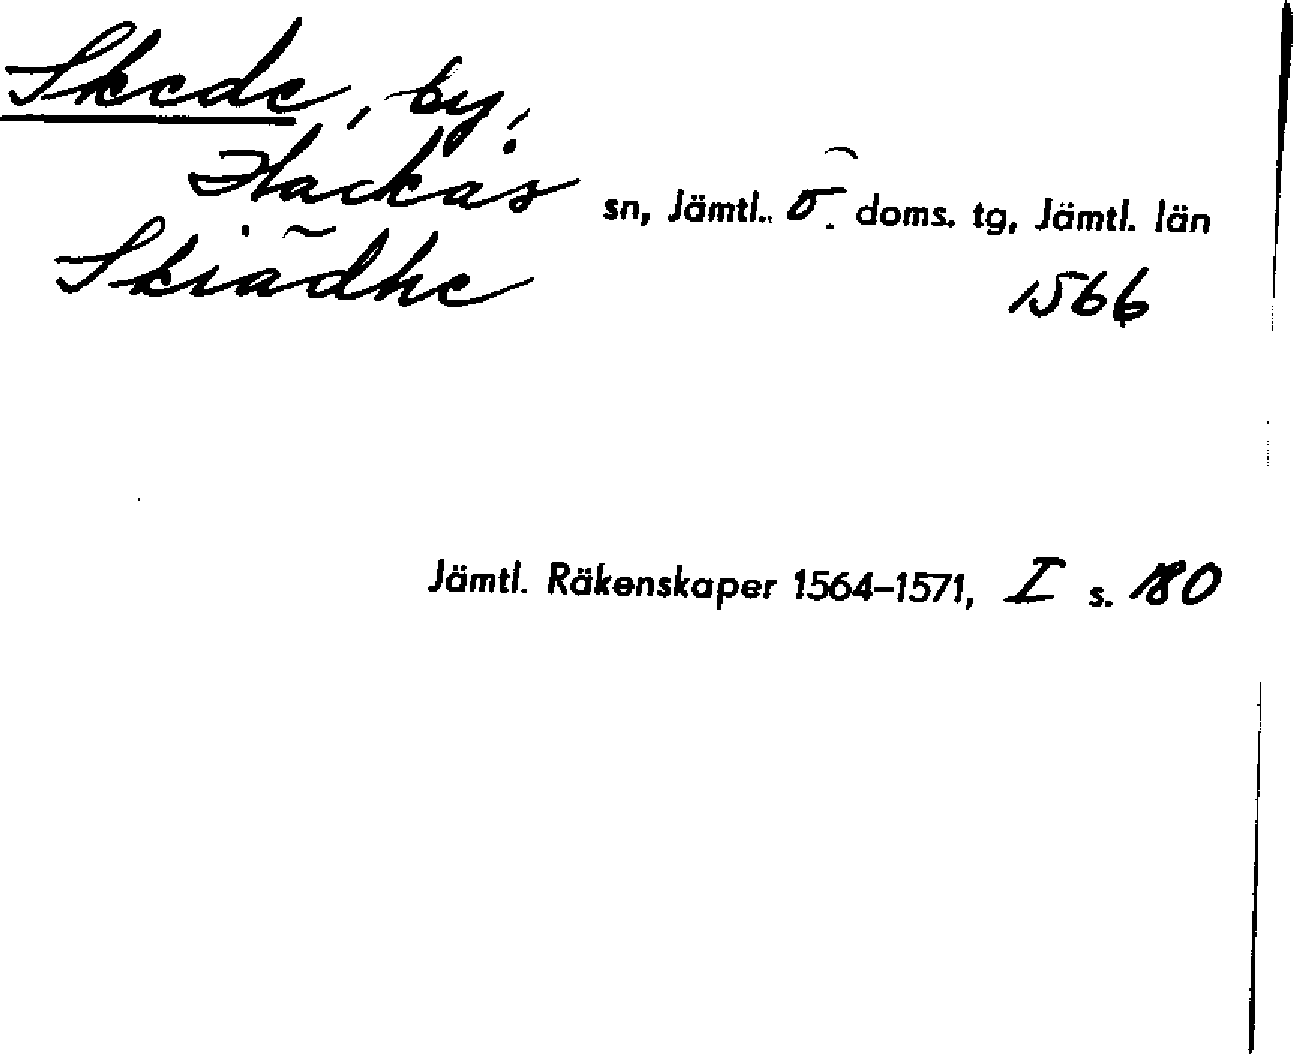 Skede, by,
Hackås sn, Jämtl.. Ö. doms. tg, Jämtl. län
Skiädhe 1566
Jämtl. Räkenskaper 1564–1571, I s. 180